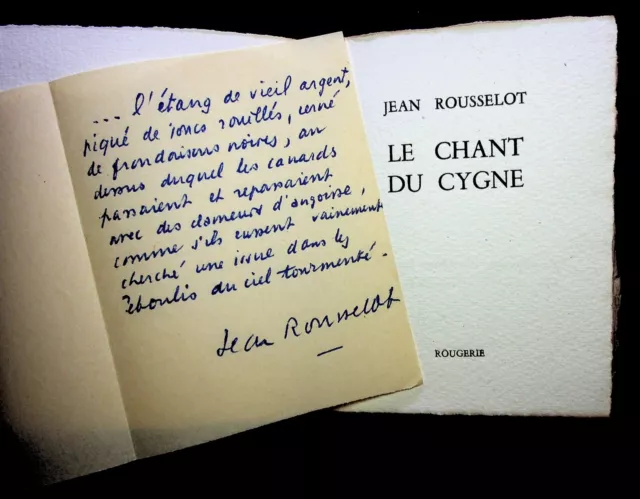 ... l'étang de vieil argent,
piqué de joncs rouillés, cerné
de frondaisons noires, au
dessus duquel les canards
passaient et repassaient
avec des clameurs d'angoisse,
comme s'ils eussent vainement
cherché une issue dans les
éboulis du ciel tourmenté.
Jean Rousselot
JEAN ROUSSELOT
LE CHANT
DU CYGNE
ROUGERIE